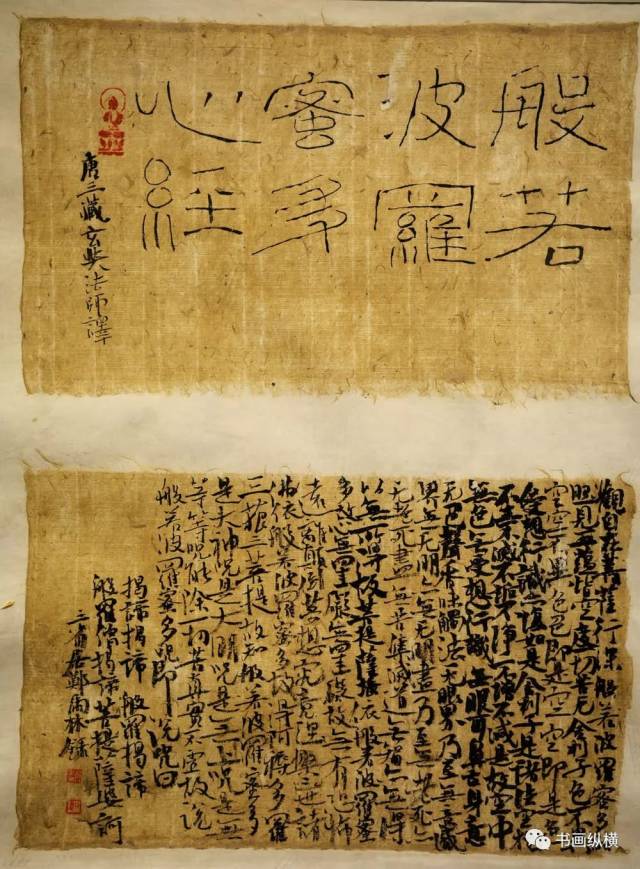 般若
波羅
蜜多
心經
唐三藏玄奘法師譯
觀自在菩薩行深般若波羅蜜多
照見五蘊皆空度一切苦厄舍利子色不
空空不異色色即是空空即是色
受想行識亦復如是舍利子是諸法空相
不生不滅不垢不淨不增不減是故空中
無色無受想行識無眼耳鼻舌身意
无色聲香味觸法无眼界乃至無意識
界无无明亦无無明盡乃至无老死亦
无老死盡无苦集滅道无智亦無得
以無所得故菩提薩埵依般若波羅蜜
多故心無罣礙無罣礙故無有恐怖
遠離顛倒夢想究竟涅槃三世諸
佛依般若波羅蜜多故得阿耨多羅
三藐三菩提故知般若波羅蜜多
是大神咒是大明咒是無上咒是無
等等咒能除一切苦真實不虛故說
般若波羅蜜多咒即說咒曰
揭諦揭諦 般羅揭諦
般羅僧揭諦菩提薩婆訶
书画纵横